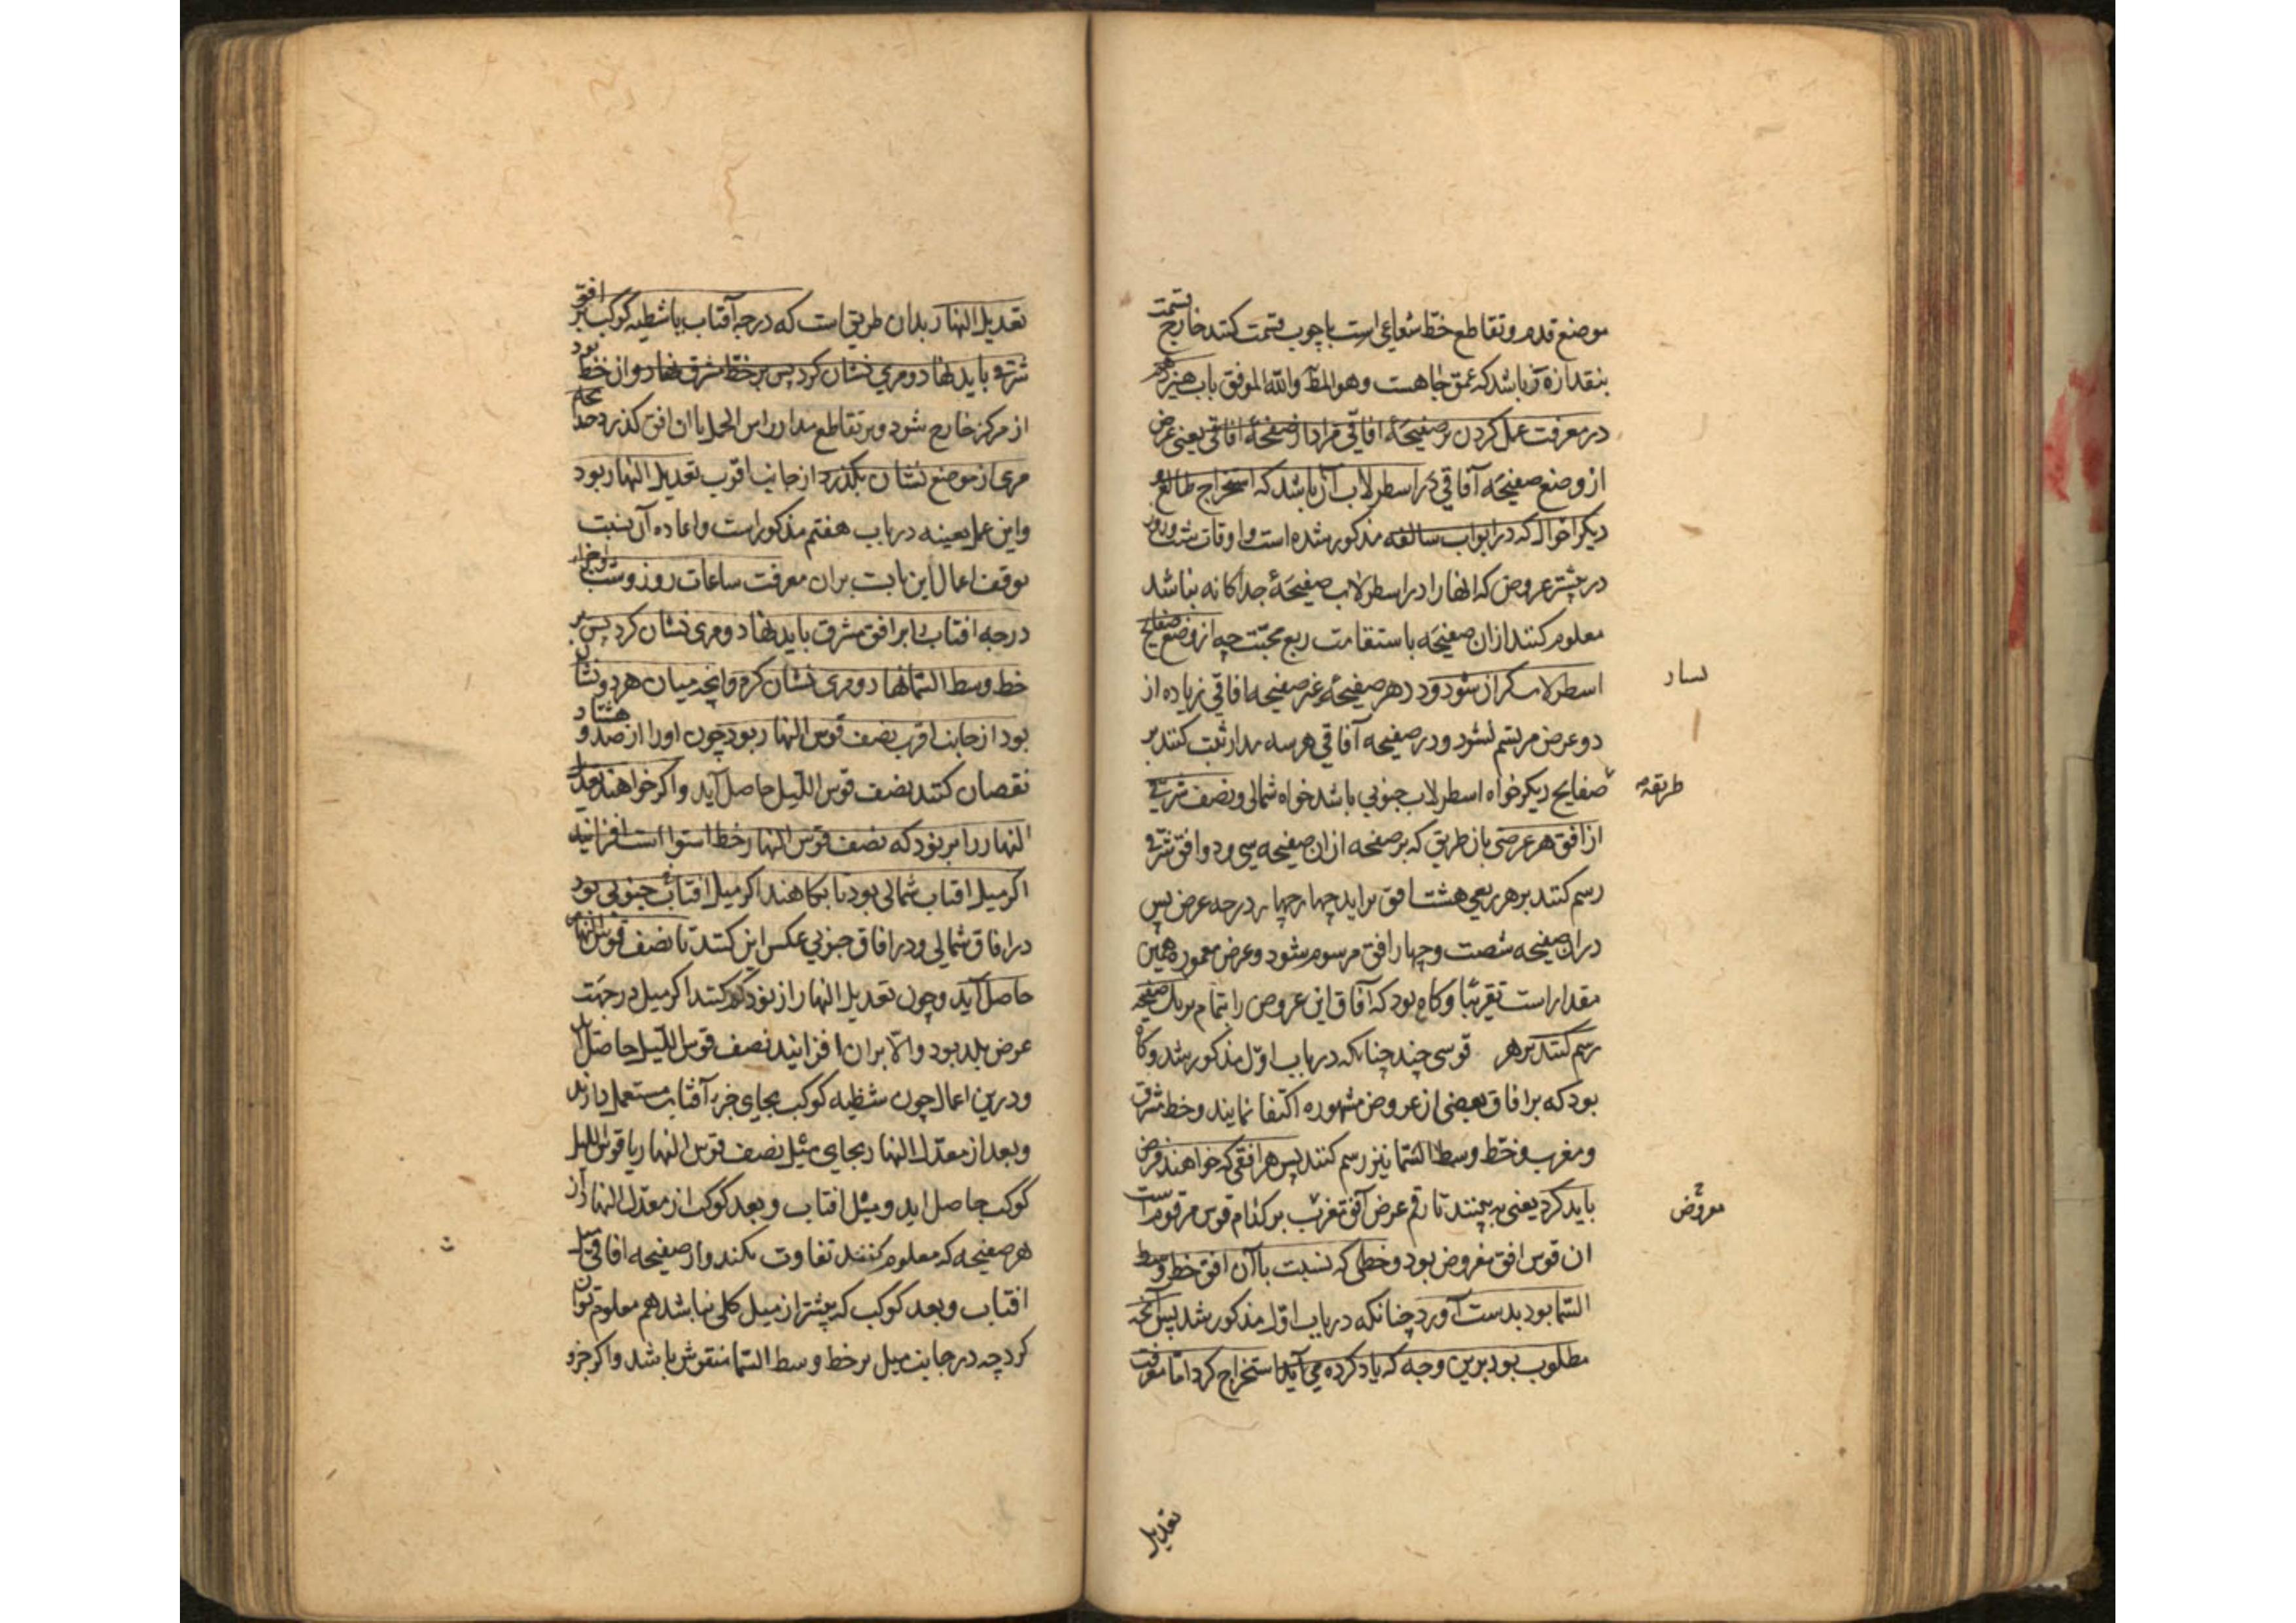 موضع قدم و تقاطع خط شعاعی است با چوب قسمت کنند خارج قسمت
بنقدازه آن باشد که عمق چاهست وهو المط والله الموفق باب هیزدهم
در معرفت عمل کردن بر صفیحهٔ افاقی مراد از صفحهٔ افاقی یعنی غرض
از وضع صفیحه آفاقی در اسطرلاب آن باشد که استخراج طالع و
دیکر احوال که در ابواب سالفه مذکور شده است و اوقات شب و روز
در بیشتر عروض که انها را در اسطرلاب صفیحهٔ جداکانه نباشد
معلوم کنند ازان صفیحه باستقامت ربع مجیّب چه از وضع صفایح
اسطرلاب کران شود و در هر صفیحهٔ غیر صفیحه افاقی زیاده از
بسیار
دو عرض مرتسم نشود و در صفیحه آفاقی هر سه مدار ثبت کنند بر
صفایح دیکر خواه اسطرلاب جنوبی باشد خواه شمالی و نصف شرقی
طریقهٔ
از افق هر عرضی بان طریق که بر صفحه ازان صفیحه سی و دو افق شرقی
رسم کنند بر هر ربعی هشت افق براید چهار چهار درجه عرض پس
دران صفیحه شصت و چهار افق مرسوم شود و عرض معموره همین
مقدار است تقریبا و کاه بود که آفاق این عروض را بتمام بر یک صفیحه
رسم کنند بر هر قوسی چند چنانکه در باب اوّل مذکور شد و کاه
بود که بر افاق بعضی از عروض مشهوره اکتفا نمایند و خط مشرق
و مغرب و خط وسط السّما نیز رسم کنند پس هر افقی که خواهند فرض
باید کرد یعنی به بینند تا رقم عرض آفق بر کدام قوس مرقوم است
معروض
ان قوس افق مفروض بود و خطی که نسبت باآن افق خط وسط
السّما بود بدست آورد چنانکه در باب اوّل مذکور شد پس آنچه
مطلوب بود برین وجه که یاد کرده می آید استخراج کرد امّا معرفت
تعدیل
تعدیل النهار بدان طریق است که درجه آفتاب یا شطیه کوکب بر افق
شرقی باید نهاد و مری نشان کرد پس بر خط مشرق نهاد و ان خط بود
از مرکز خارج شود و بر تقاطع مدار راس الحمل با ان افق کذرد
مری از موضع نشان بکذرد از جانب اقرب تعدیل النهار بود
و این عمل بعینه در باب هفتم مذکور است و اعاده آن بنسبت
توقف اعمال این بابت بران معرفت ساعات روز و شب
درجه افتاب را بر افق مشرق باید نهاد و مری نشان کرد پس بر
خط وسط السّما نهاد و مری نشان کرم و انچه میان هر دو نشان
بود از جانب اقرب نصف قوس النهار بود چون اورا از صد و هشتاد
نقصان کنند نصف قوس اللّیل حاصل آید و اکر خواهند تعدیل
النهار را بر نود که نصف قوس النهار خط استوا است افزایند
اکر میل افتاب شمالی بود تا بکاهند اکر میل افتاب جنوبی بود
در افاق شمالی و در افاق جنوبی عکس این کنند تا نصف قوس النهار
حاصل آید و چون تعدیل النهار از نود کم کنند اکر میل در جهت
عرض بلد بود والّا بران افزایند نصف قوس اللّیل حاصل آید
و درین اعمال چون شظیه کوکب بجای جزء آفتاب مستعمل دارند
و بعد از معدّل النهار بجای میل نصف قوس النهار یا قوس اللیل
کوکب حاصل اید و میل افتاب و بعد کوکب از معدّل النهار از
هر صفیحه که معلوم کنند تفاوت نکند و از صفیحه افاقی میل
افتاب و بعد کوکب که بیشتر از میل کلی نباشد هم معلوم توان
کرد چه در جانب میل بر خط وسط السّما منقوش باشد و اکر جزو